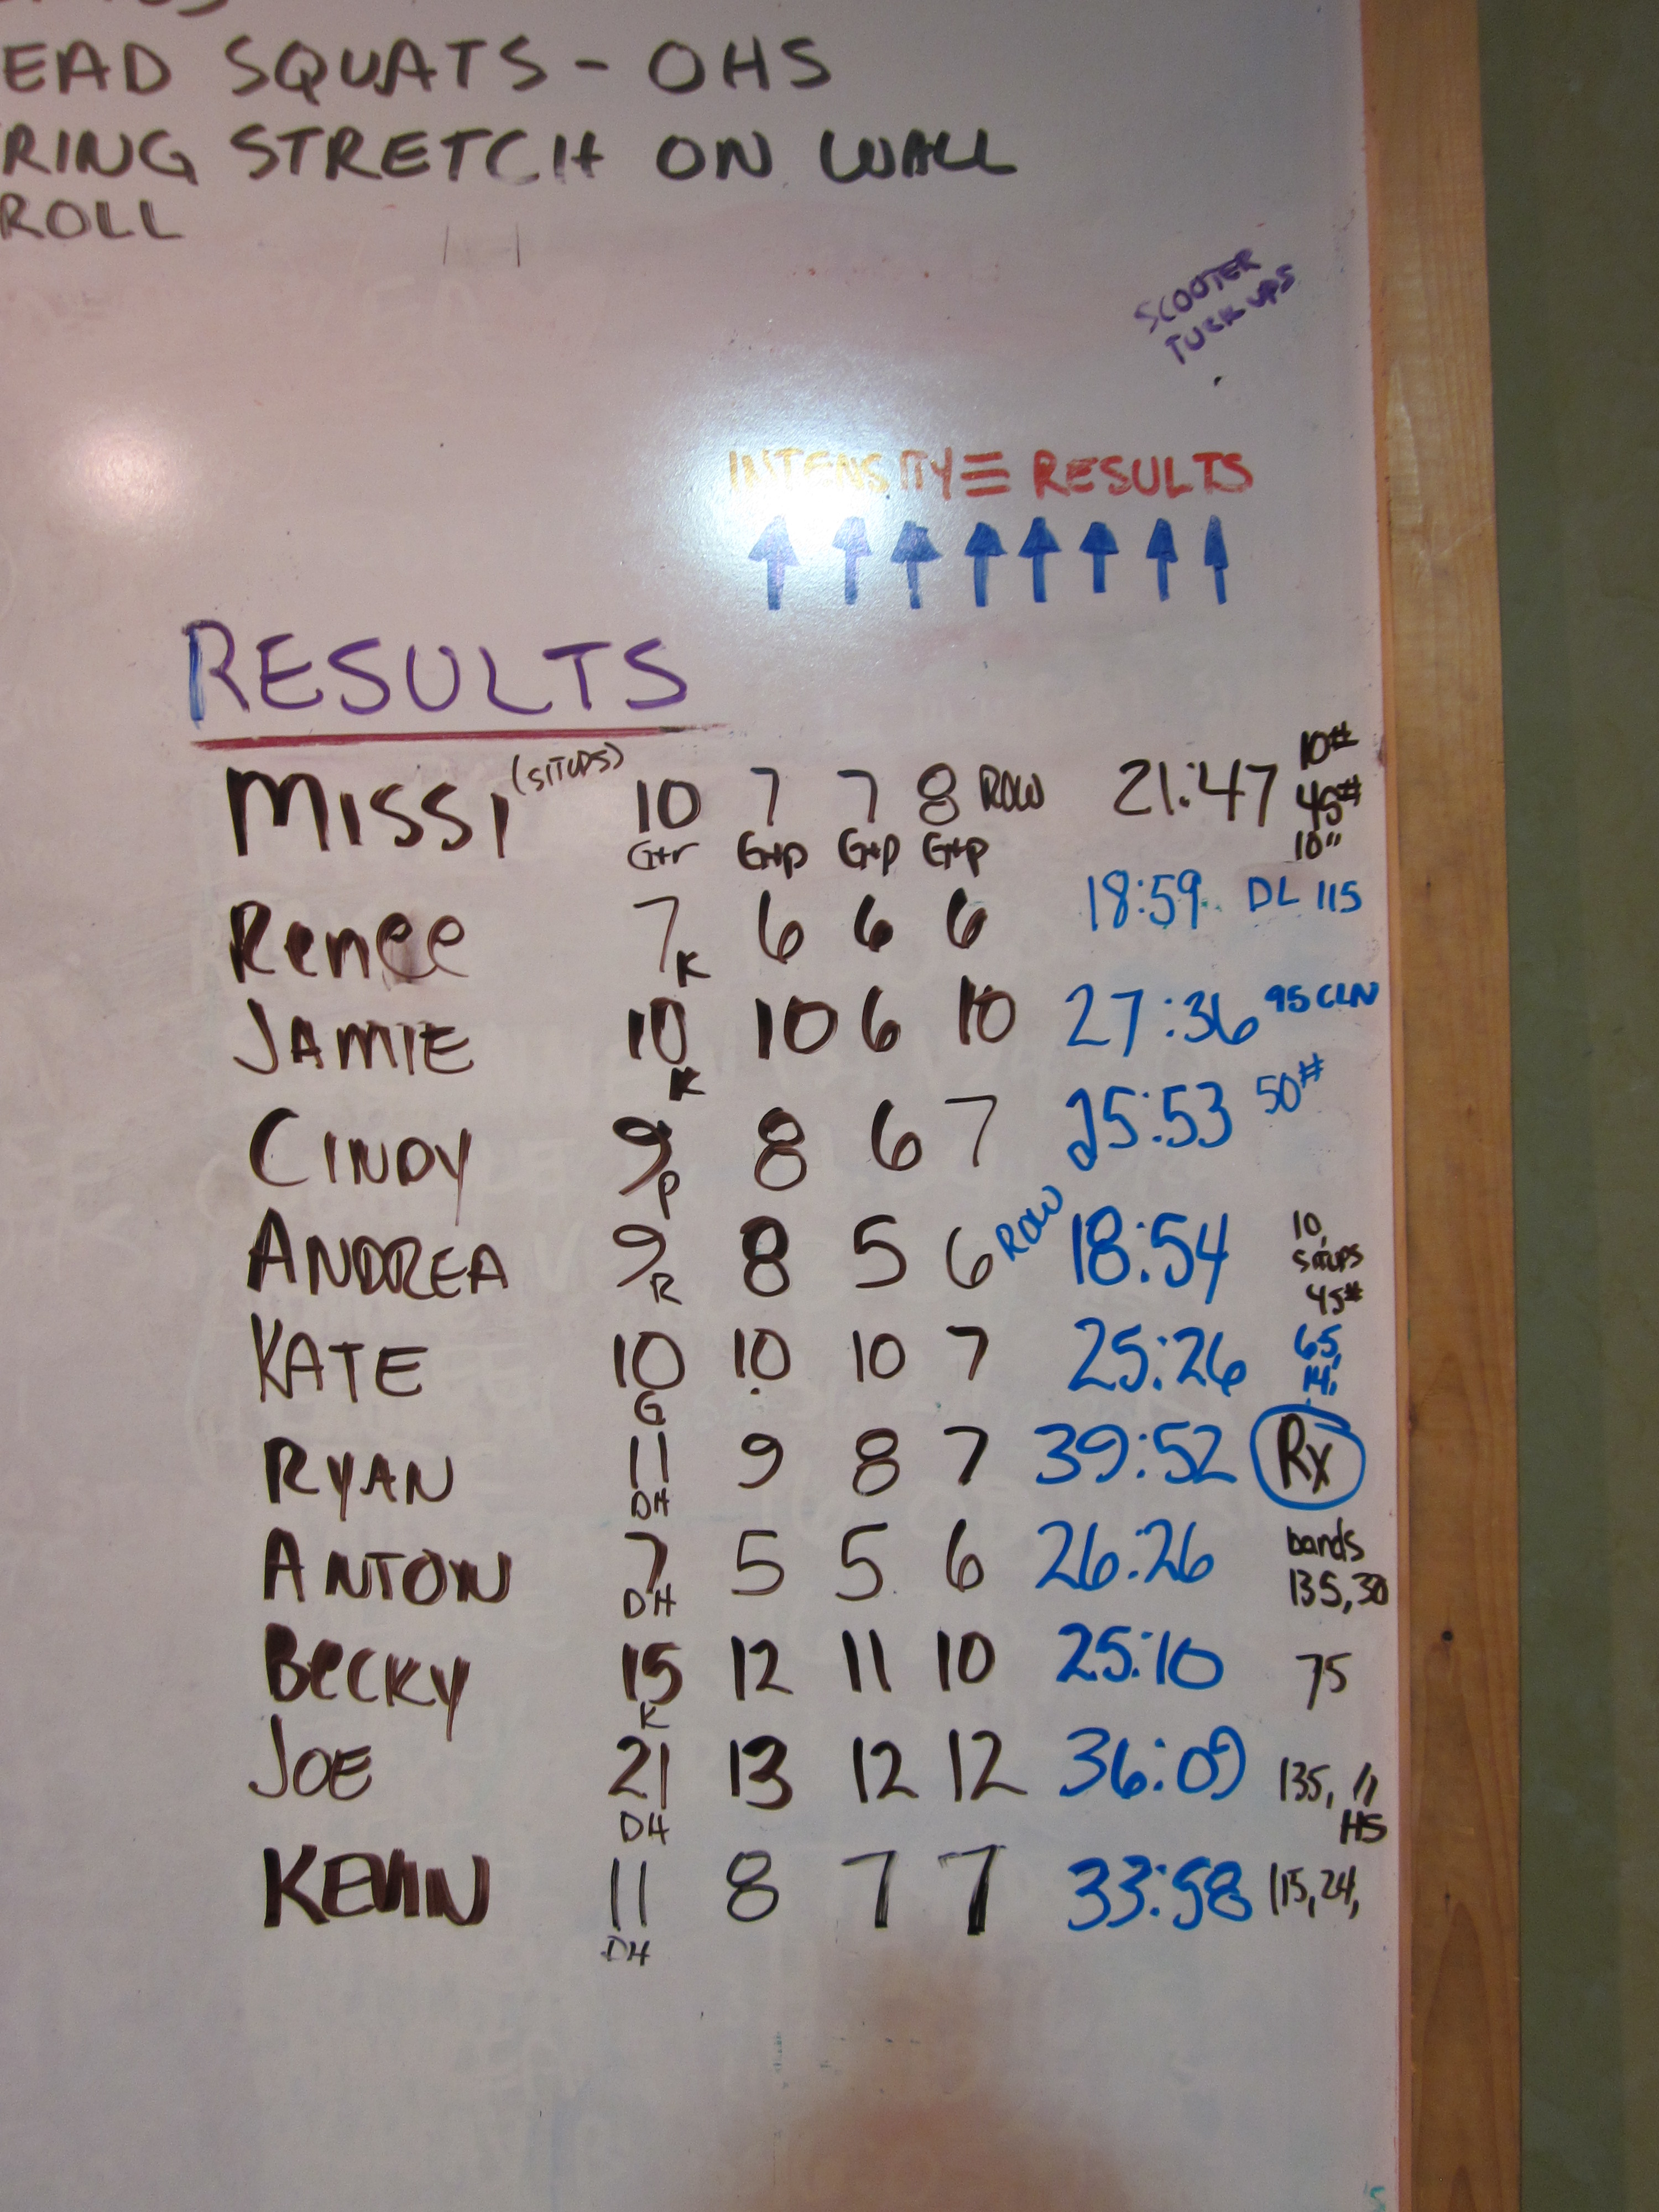 EAD SQUATS - OHS
RING STRETCH ON WALL
ROLL
SCOOTER
TUCK UPS
INTENSITY ≡ RESULTS
RESULTS
MISSI (SITUPS) 10 7 7 8 ROW 21:47 10# 45# 10"
G+r G+p G+p G+p
Renee 7 K 6 6 6 18:59 DL 115
JAMIE 10 K 10 6 10 27:36 95 CLN
CINDY 9 P 8 6 7 25:53 50#
ANDREA 9 R 8 5 6 ROW 18:54 10, SITUPS 45#
KATE 10 G 10 10 7 25:26 65, 14,
RYAN 11 DH 9 8 7 39:52 Rx
ANTON 7 DH 5 5 6 26:26 bands 135, 30
BECKY 15 K 12 11 10 25:10 75
JOE 21 DH 13 12 12 36:09 135, // HS
KEVIN 11 DH 8 7 7 33:58 115, 24,